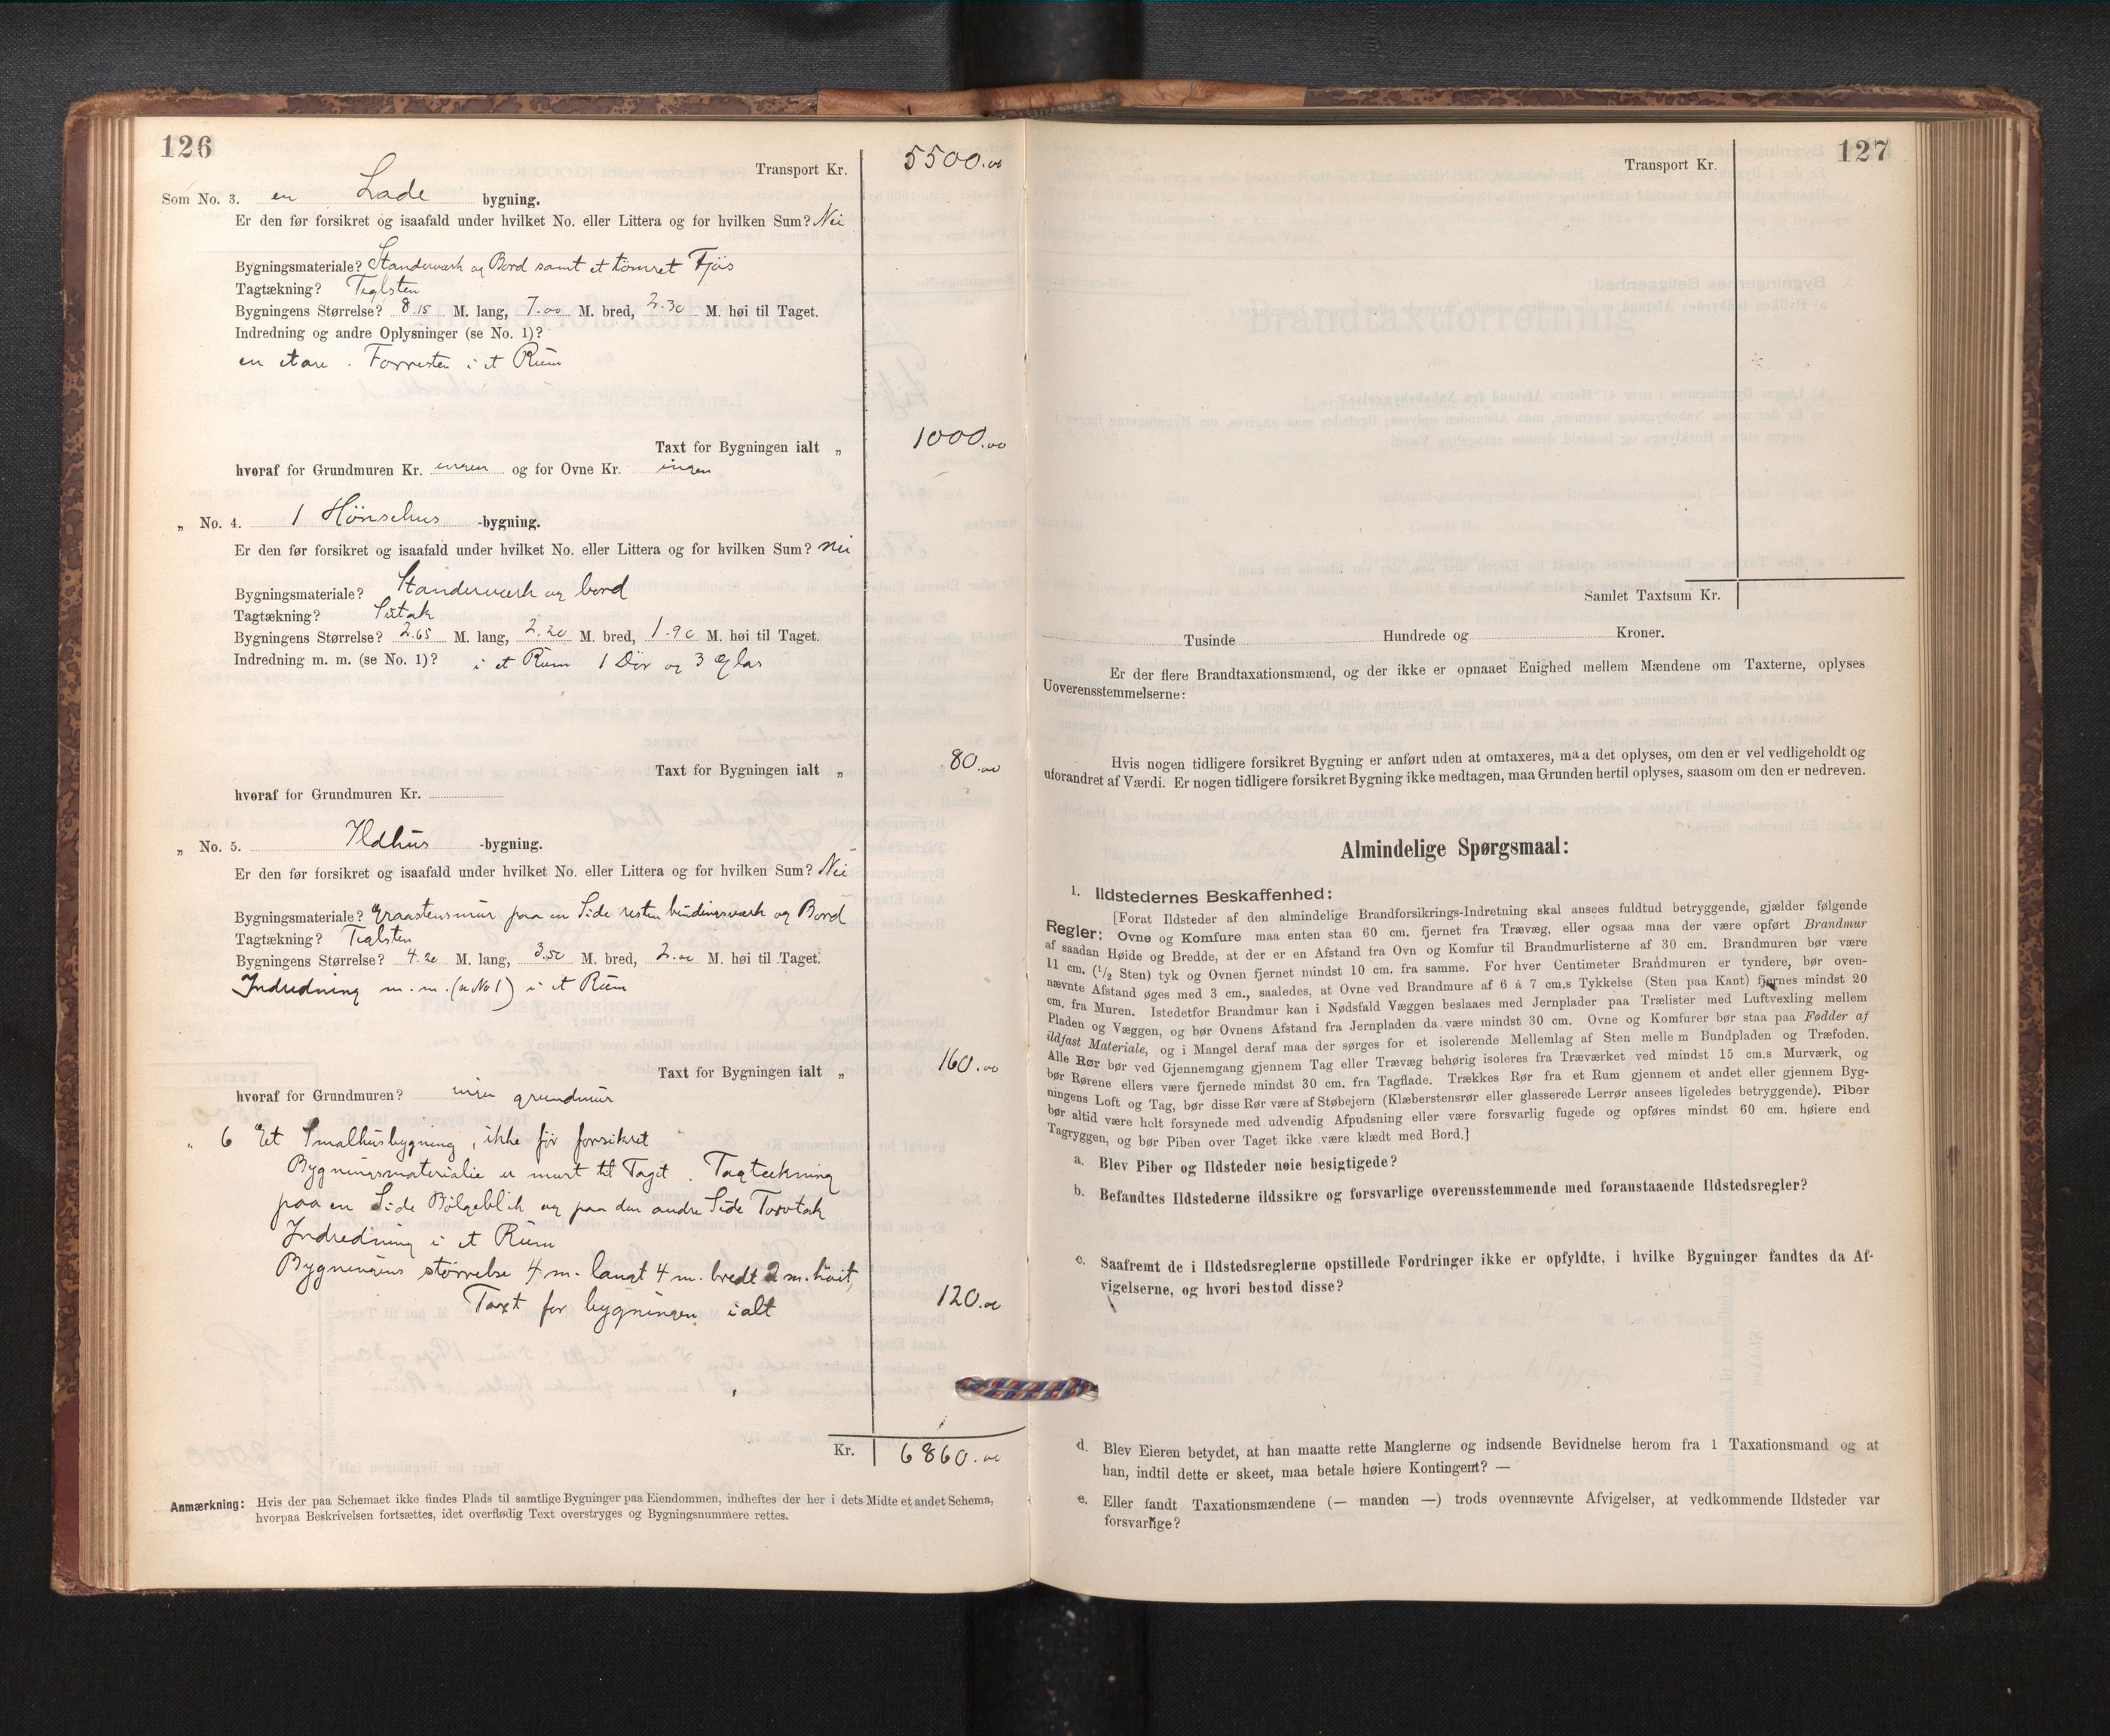 126
Transport Kr. 5500.00
Som No. 3. en Lade bygning.
Er den før forsikret og isaafald under hvilket No. eller Littera og for hvilken Sum? Nei
Bygningsmateriale? Standerværk og Bord samt et tömret Fjös
Tagtækning? Teglsten
Bygningens Størrelse? 8.15 M. lang, 7.00 M. bred, 2.30 M. høi til Taget.
Indredning og andre Oplysninger (se No. 1)?
en etage. Forresten i et Rum
Taxt for Bygningen ialt „ 1000.00
hvoraf for Grundmuren Kr. ingen og for Ovne Kr. ingen
„ No. 4. 1 Hönsehus -bygning.
Er den før forsikret og isaafald under hvilket No. eller Littera og for hvilken Sum? nei
Bygningsmateriale? Standerværk og bord
Tagtækning? Sutak
Bygningens Størrelse? 2.65 M. lang, 2.20 M. bred, 1.90 M. høi til Taget.
Indredning m. m. (se No. 1)? i et Rum 1 Dör og 3 Glas
Taxt for Bygningen ialt „ 80.00
hvoraf for Grundmuren Kr.
„ No. 5. Ildhus -bygning.
Er den før forsikret og isaafald under hvilket No. eller Littera og for hvilken Sum? Nei
Bygningsmateriale? Graastensmur paa en Side resten bindingsværk og Bord
Tagtækning? Teglsten
Bygningens Størrelse? 4.20 M. lang, 3.50 M. bred, 2.00 M. høi til Taget.
Indredning m. m. (se No 1) i et Rum
Taxt for Bygningen ialt „ 160.00
hvoraf for Grundmuren? ingen grundmur
„ 6 Et Smalhusbygning, ikke för forsikret
Bygningsmaterialie er murt til Taget. Tagtækning
paa en Side Bölgeblik og paa den andre Side Torvtak
Indredning i et Rum
Bygningens störrelse 4 m. langt 4 m. bredt 2 m. höit,
Taxt for bygningen ialt 120.00
Kr. 6860.00
Anmærkning: Hvis der paa Schemaet ikke findes Plads til samtlige Bygninger paa Eiendommen, indheftes der her i dets Midte et andet Schema,
hvorpaa Beskrivelsen fortsættes, idet overflødig Text overstryges og Bygningsnummere rettes.
127
Transport Kr.
Samlet Taxtsum Kr.
Tusinde Hundrede og Kroner.
Er der flere Brandtaxationsmænd, og der ikke er opnaaet Enighed mellem Mændene om Taxterne, oplyses
Uoverensstemmelserne:
Hvis nogen tidligere forsikret Bygning er anført uden at omtaxeres, maa det oplyses, om den er vel vedligeholdt og
uforandret af Værdi. Er nogen tidligere forsikret Bygning ikke medtagen, maa Grunden hertil oplyses, saasom om den er nedreven.
Almindelige Spørgsmaal:
1. Ildstedernes Beskaffenhed:
[Forat Ildsteder af den almindelige Brandforsikrings-Indretning skal ansees fuldtud betryggende, gjælder følgende
Regler: Ovne og Komfure maa enten staa 60 cm. fjernet fra Trævæg, eller ogsaa maa der være opført Brandmur
af saadan Høide og Bredde, at der er en Afstand fra Ovn og Komfur til Brandmurlisterne af 30 cm. Brandmuren bør være
11 cm. (1/2 Sten) tyk og Ovnen fjernet mindst 10 cm. fra samme. For hver Centimeter Brandmuren er tyndere, bør oven-
nævnte Afstand øges med 3 cm., saaledes, at Ovne ved Brandmure af 6 à 7 cm.s Tykkelse (Sten paa Kant) fjernes mindst 20
cm. fra Muren. Istedetfor Brandmur kan i Nødsfald Væggen beslaaes med Jernplader paa Trælister med Luftvexling mellem
Pladen og Væggen, og bør Ovnens Afstand fra Jernpladen da være mindst 30 cm. Ovne og Komfurer bør staa paa Fødder af
ildfast Materiale, og i Mangel deraf maa der sørges for et isolerende Mellemlag af Sten mellem Bundpladen og Træfoden.
Alle Rør bør ved Gjennemgang gjennem Tag eller Trævæg behørig isoleres fra Træværket ved mindst 15 cm.s Murværk, og
bør Rørene ellers være fjernede mindst 30 cm. fra Tagflade. Trækkes Rør fra et Rum gjennem et andet eller gjennem Byg-
ningens Loft og Tag, bør disse Rør være af Støbejern (Klæberstensrør eller glasserede Lerrør ansees ligeledes betryggende). Piber
bør altid være holt forsynede med udvendig Afpudsning eller være forsvarlig fugede og opføres mindst 60 cm. høiere end
Tagryggen, og bør Piben over Taget ikke være klædt med Bord.]
a. Blev Piber og Ildsteder nøie besigtigede?
b. Befandtes Ildstederne ildssikre og forsvarlige overensstemmende med foranstaaende Ildstedsregler?
c. Saafremt de i Ildstedsreglerne opstillede Fordringer ikke er opfyldte, i hvilke Bygninger fandtes da Af-
vigelserne, og hvori bestod disse?
d. Blev Eieren betydet, at han maatte rette Manglerne og indsende Bevidnelse herom fra 1 Taxationsmand og at
han, indtil dette er skeet, maa betale høiere Kontingent? —
e. Eller fandt Taxationsmændene (— manden —) trods ovennævnte Afvigelser, at vedkommende Ildsteder var
forsvarlige?